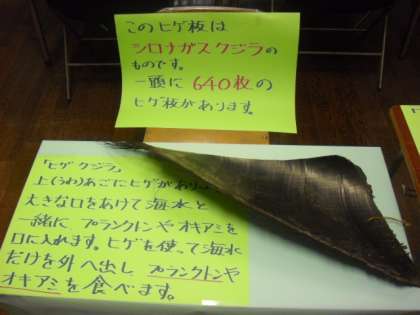 このヒゲ板は
シロナガスクジラの
ものです。
一頭に640枚の
ヒゲ板があります。
「ヒゲクジラ」
上(うわ)あごにヒゲがあり
大きな口をあけて海水と
一緒にプランクトンやオキアミを
口に入れます。ヒゲを使って海水
だけを外へ出しプランクトンや
オキアミを食べます。